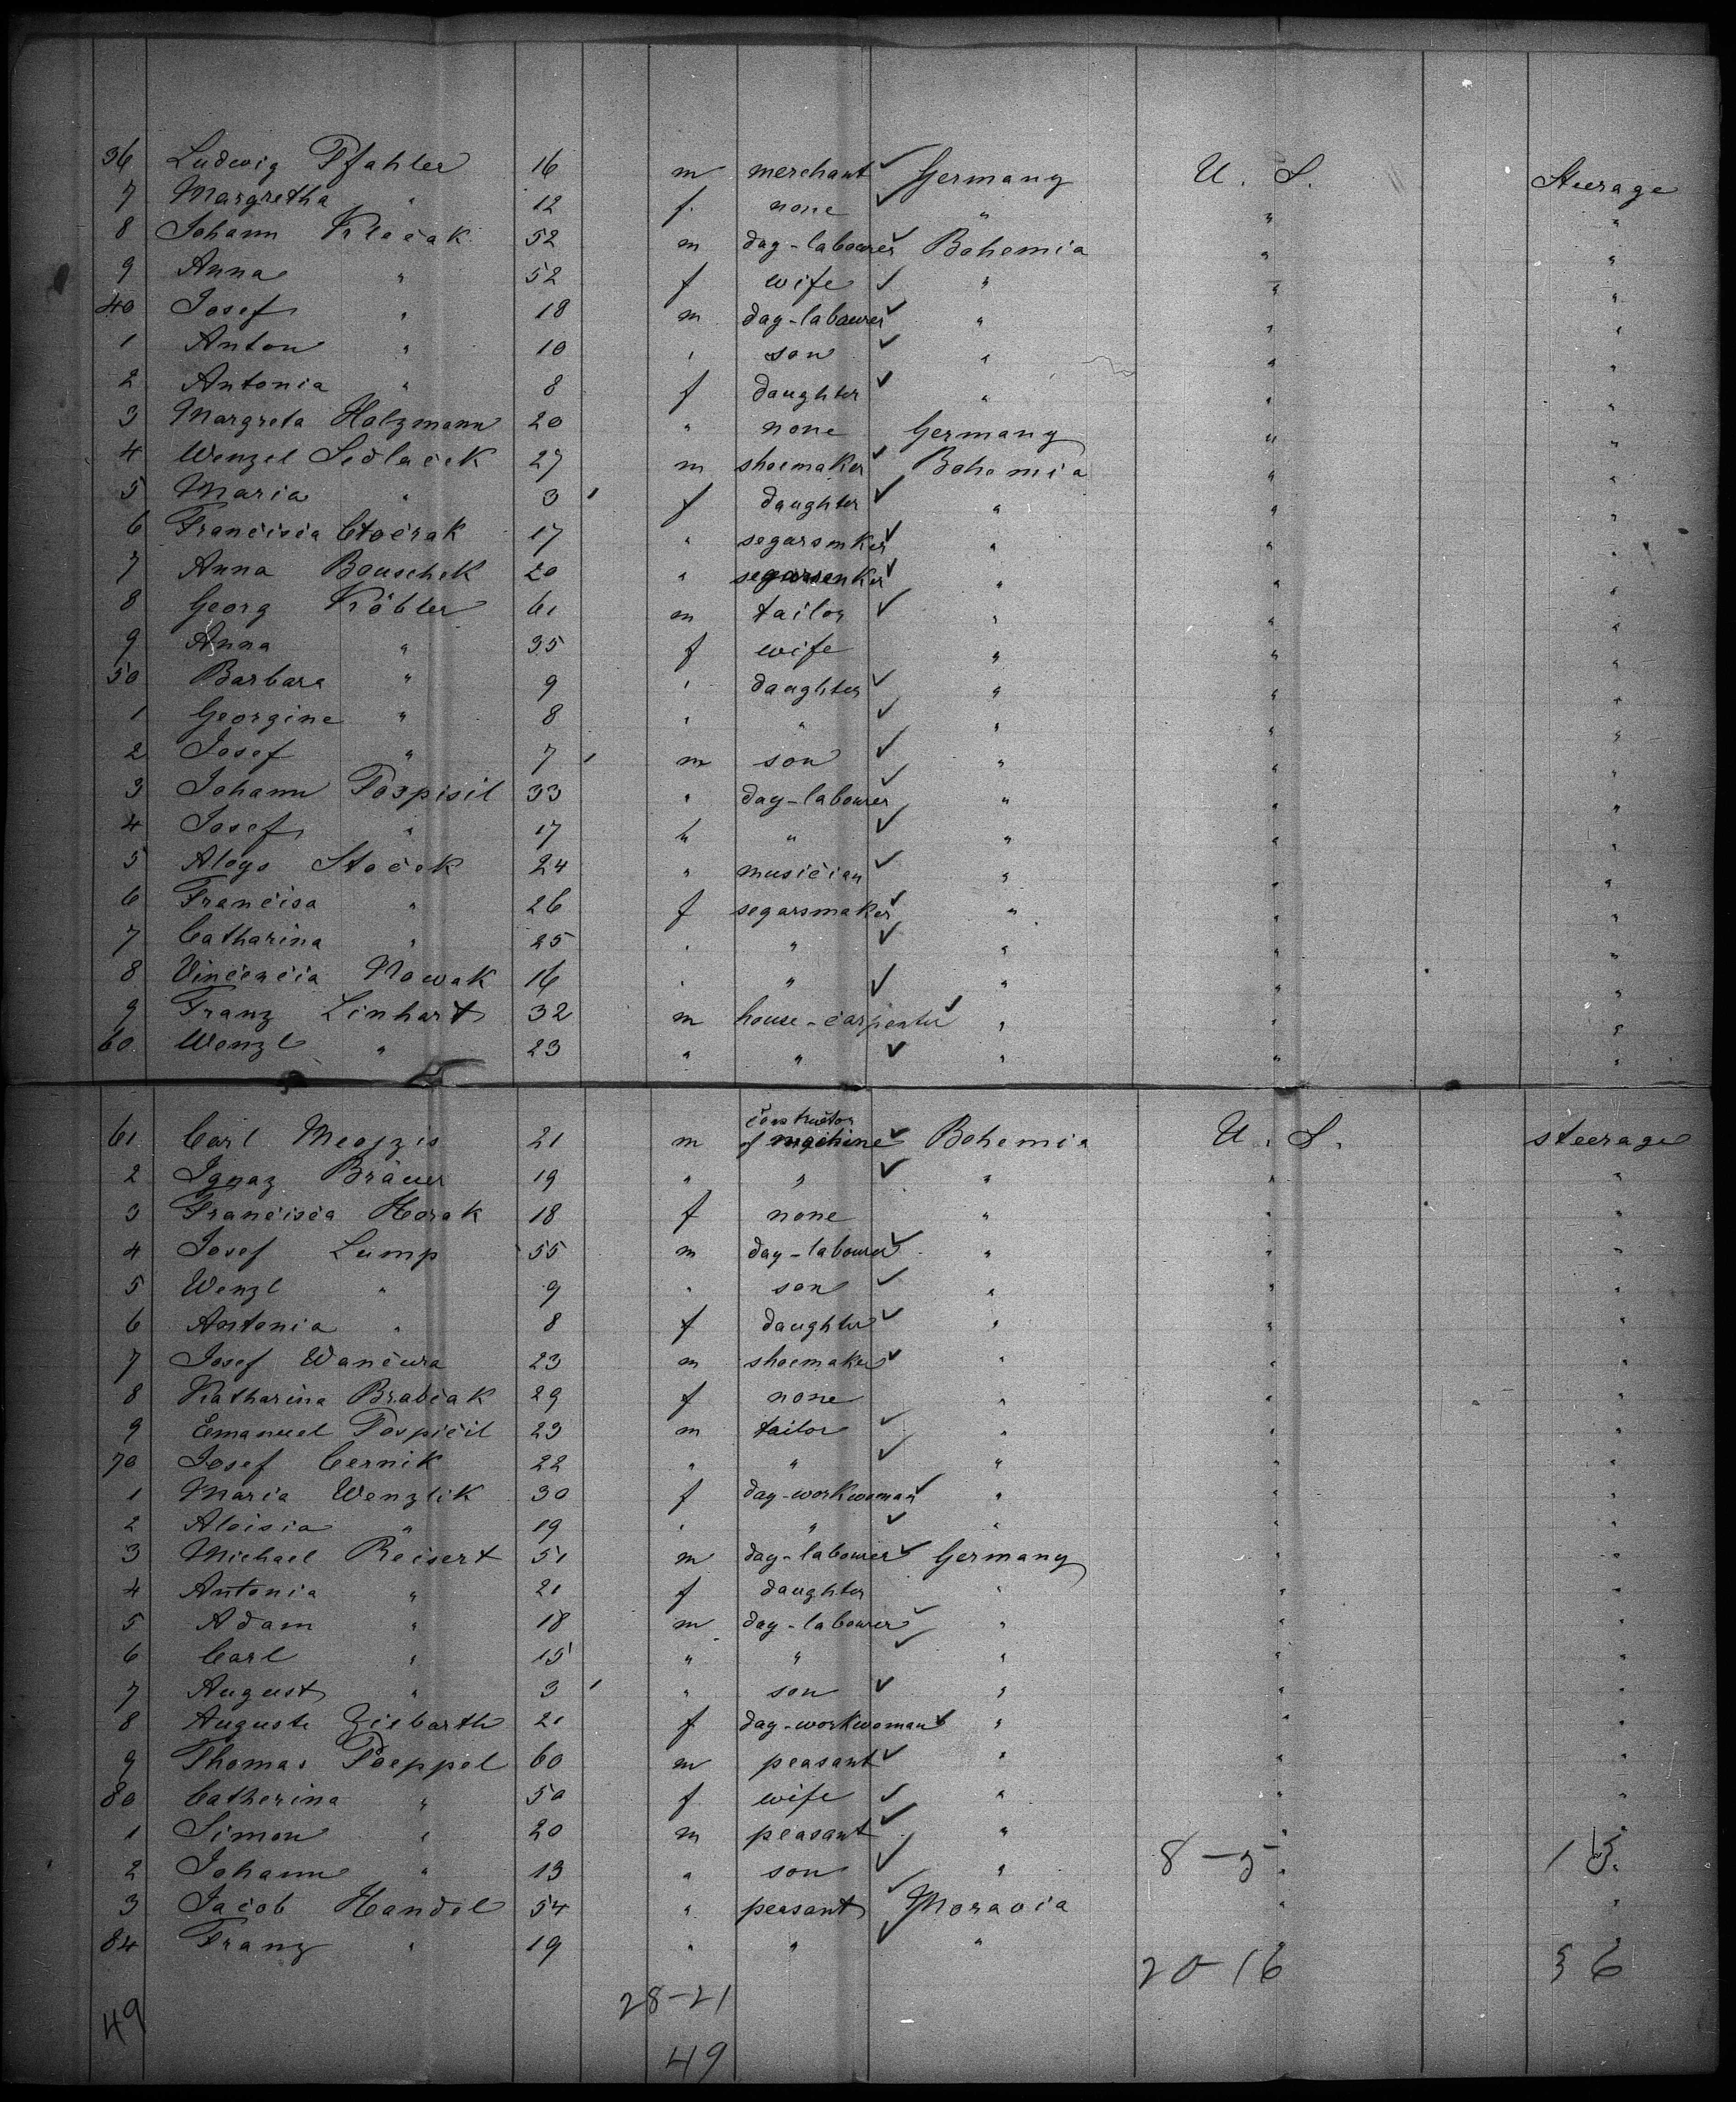 36 Ludwig Pfahler 16 m merchant Germany U. S. Steerage
7 Margretha " 12 f. none " " "
8 Johann Klečak 52 m day-labourer Bohemia " "
9 Anna " 52 f wife " " "
40 Josef " 18 m day-labourer " " "
1 Anton " 10 " son " " "
2 Antonia " 8 f daughter " " "
3 Margreta Holzmann 20 " none Germany " "
4 Wenzel Sedlaček 27 m shoemaker Bohemia " "
5 Maria " 3 f daughter " " "
6 Francisca 17 " segarsmker " " "
7 Anna Bouschek 20 " " " "
8 Georg Köbler 61 m tailor " " "
9 Anna " 35 f wife " " "
50 Barbara " 9 " daughter " " "
1 Georgine " 8 " " " " "
2 Josef " 7 m son " " "
3 Johann Pospisil 33 " day-labourer " " "
4 Josef " 17 " " " " "
5 Aloys Stoček 24 " musician " " "
6 Francisa " 26 f segarsmaker " " "
7 Catharina " 25 " " " " "
8 Vincencia Nowak 16 " " " " "
9 Franz Linhart 32 m house-carpenter " " "
60 Wenzl " 23 " " " " "
constructor
61 Carl 21 m of machine Bohemia U. S. steerage
2 Ignaz Bräuer 19 " " " " "
3 Francisca Horak 18 f none " " "
4 Josef Lump 55 m day-labourer " " "
5 Wenzl " 9 " son " " "
6 Antonia " 8 f daughter " " "
7 Josef Wancura 23 m shoemaker " " "
8 Katharina Brabcak 29 f none " " "
9 Emanuel Pospicil 23 m tailor " " "
70 Josef Cernik 22 " " " " "
1 Maria Wenzlik 30 f day-workwoman " " "
2 Aloisia " 19 " " " " "
3 Michael Reisert 51 m day-labourer Germany " "
4 Antonia " 21 f daughter " " "
5 Adam " 18 m day-labourer " " "
6 Carl " 15 " " " " "
7 August " 3 " son " " "
8 Auguste Ziebarth 21 f day-workwoman " " "
9 Thomas Poeppel 60 m peasant " " "
80 Catherina " 50 f wife " " "
1 Simon " 20 m peasant " " "
2 Johann " 13 " son " 8-5 " 13
3 Jacob Handel 54 " peasant Moravia " "
84 Franz " 19 " " " " "
20-16 36
49 28-21
49